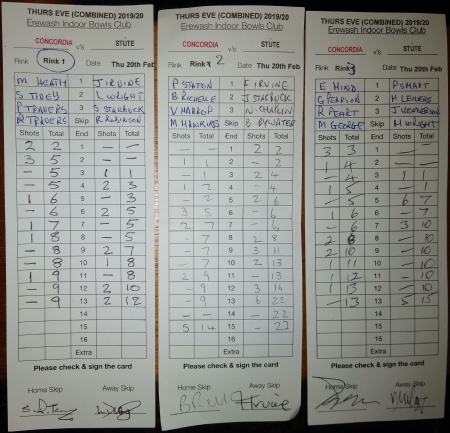 THURS EVE (COMBINED) 2019/20
Erewash Indoor Bowls Club
CONCORDIA v's STUTE
Rink Rink 1 Date Thu 20th Feb
M HEATH 1 J IRVINE
S TIDEY 2 L WRIGHT
P TRAVERS 3 S STARBUCK
R TRAVERS Skip R ROBINSON
Shots Total End Shots Total
2 2 1 - -
3 5 2 - -
- 5 3 1 1
- 5 4 2 3
1 6 5 - 3
- 6 6 2 5
1 7 7 - 5
1 8 8 - 5
- 8 9 2 7
- 8 10 1 8
1 9 11 - 8
- 9 12 2 10
- 9 13 2 12
14
15
16
Extra
Please check & sign the card
Home Skip Away Skip
THURS EVE (COMBINED) 2019/20
Erewash Indoor Bowls Club
CONCORDIA v's STUTE
Rink Rink 2 Date Thu 20th Feb
P STATON 1 E IRVINE
B RICHELLE 2 J STARBUCK
V HARROD 3 N
M HAWKINS Skip B BYWATER
Shots Total End Shots Total
- - 1 2 2
2 - 2
- 3 2 4
1 2 4 - 4
- 5 2 6
3 5 6 - 6
2 7 7 - 6
- 7 8 2 8
- 7 9 3 11
- 7 10 2 13
2 9 11 - 13
- 9 12 3 16
- 9 13 6 22
- 14 - 22
5 14 15 - 22
16
Extra
Please check & sign the card
Home Skip Away Skip
E Irvine
THURS EVE (COMBINED) 2019/20
Erewash Indoor Bowls Club
CONCORDIA v's STUTE
Rink Rink 3 Date Thu 20th Feb
E HIND 1 P SMART
G PEARSON 2 H LEIVERS
R PEART 3 J
M GEORGE Skip M WRIGHT
Shots Total End Shots Total
3 3 1 - -
1 4 2 - -
- 4 3 1 1
1 5 4 - 1
- 5 5 6 7
1 6 6 - 7
- 6 7 3 10
2 8 8 - 10
2 10 9 - 10
1 11 10 - 10
1 12 11 - 10
1 13 12 - 10
- 13 13 5 15
14
15
16
Extra
Please check & sign the card
Home Skip Away Skip